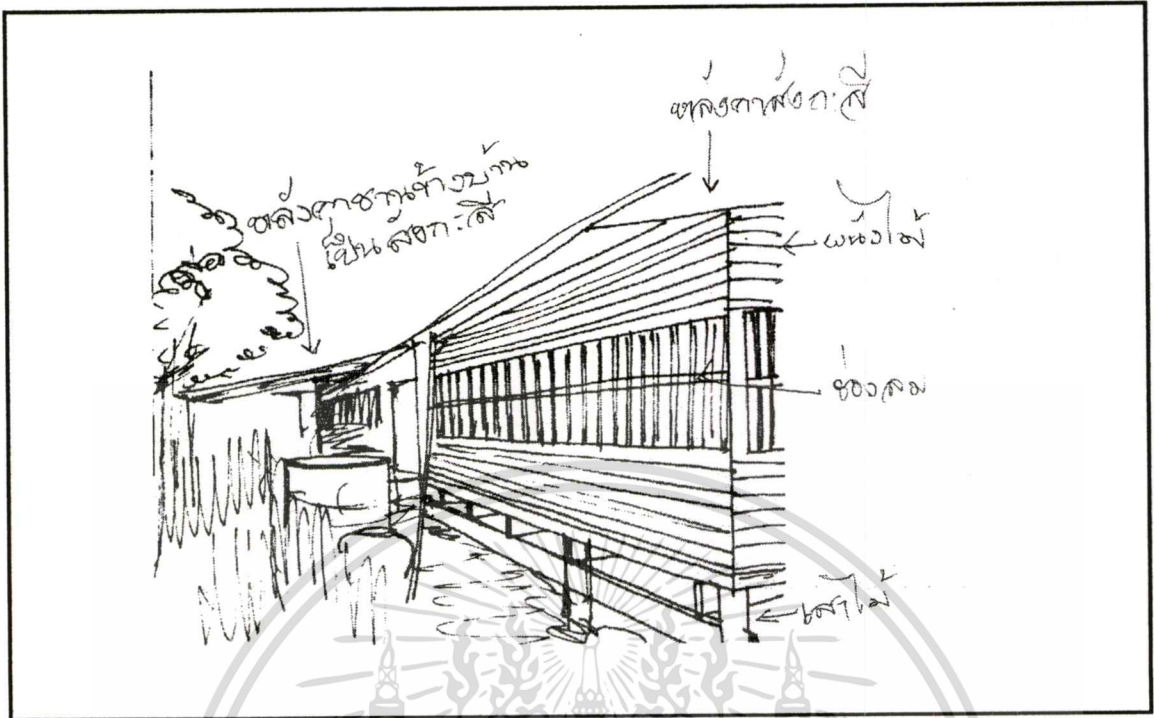 หลังคาสังกะสี
หลังคาชานข้างบ้าน
เป็นสังกะสี
ผนังไม้
ช่องลม
เสาไม้